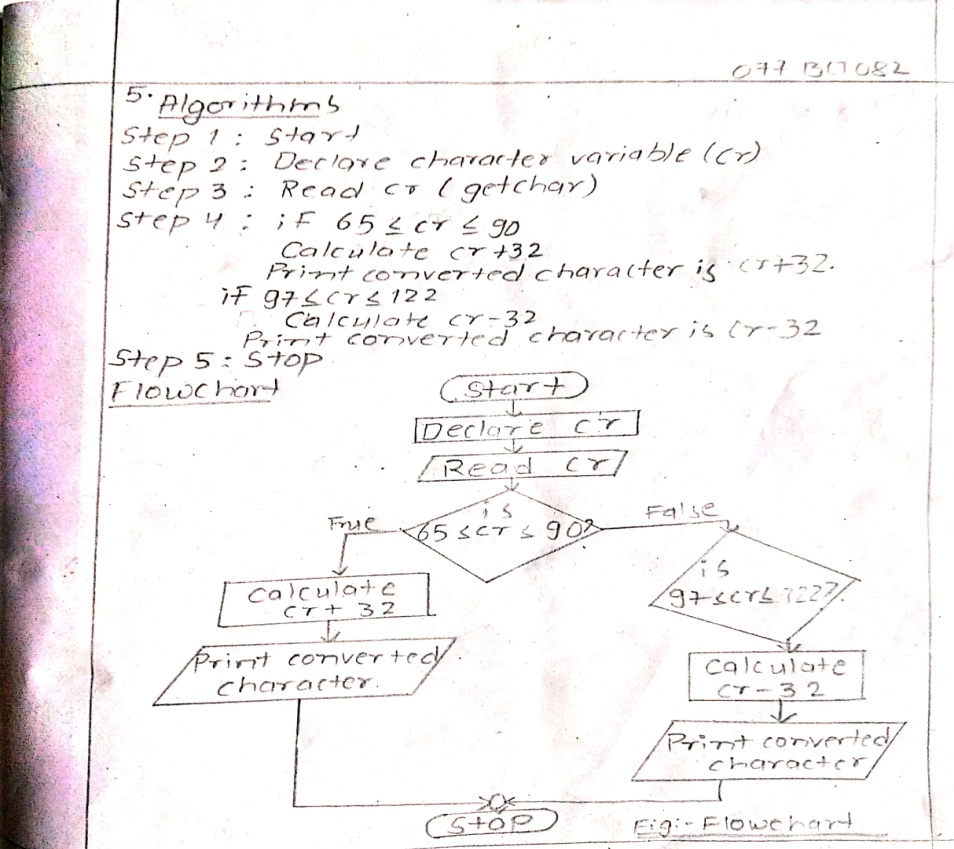 077 BCT082
5. Algorithms
Step 1 : Start
Step 2 : Declare character variable (cr)
Step 3 : Read cr ( getchar)
Step 4 : if 65 ≤ cr ≤ 90
Calculate cr +32
Print converted character is cr+32.
if 97≤cr≤122
Calculate cr-32
Print converted character is cr-32
Step 5 : Stop
Flowchart
Start
Declare cr
Read cr
is
65 ≤cr ≤ 90?
True
False
Calculate
cr+ 32
Print converted
character.
is
97≤cr≤122?
Calculate
cr-32
Print converted
character
Stop
Fig:- Flowchart